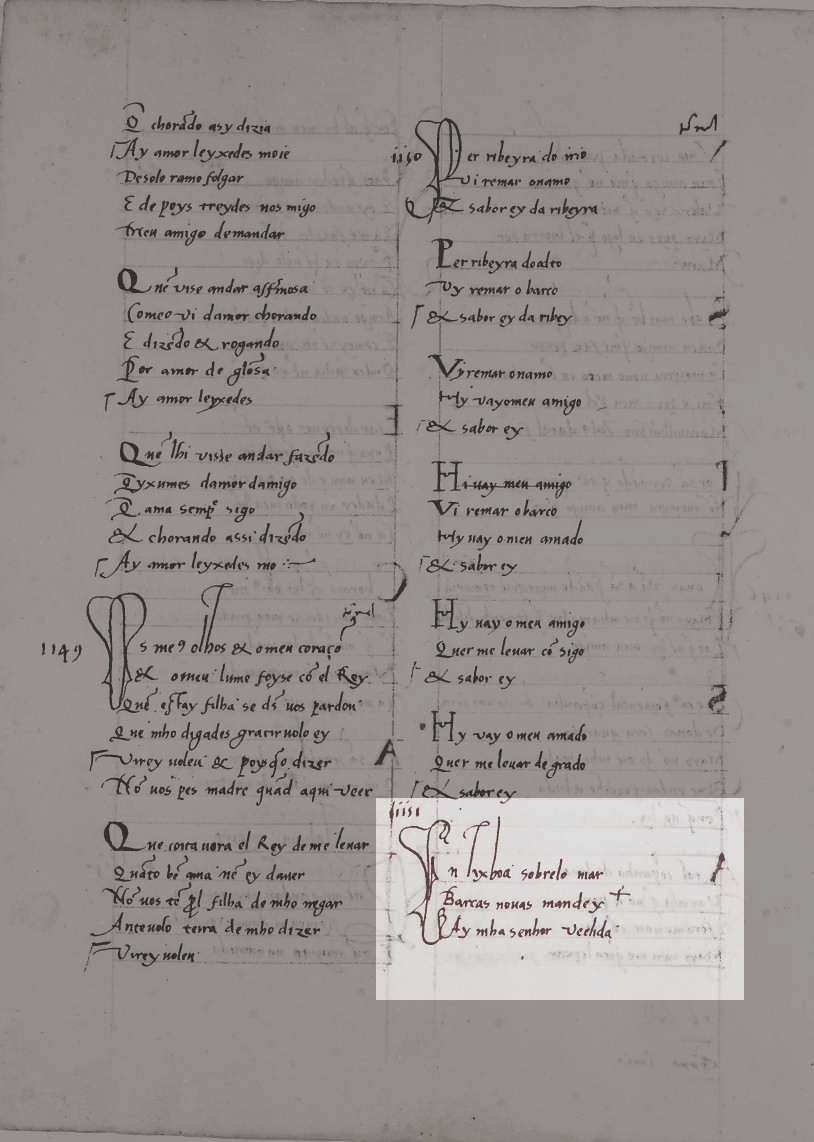 Q̃ chorãdo asy dizia
Ay amor leyxedes moie
De solo ramo folgar
E de poys treydes nos migo
meu amigo demandar
Quẽ vise andar
Comeo vi damor chorando
E dizẽdo & rogando
Por amor de glosa
Ay amor leyxedes
Quẽ lhi visse andar fazẽdo
Qyxumes damor damigo
Q̃ ama semp̃ sigo
& chorando assi dizẽdo
Ay amor leyxedes mo
1149
s me9 olhos & o meu coraçõ
& o meu lume foyse cõ el Rey
Quẽ estay filha se ds̃ uos pardon
Que mho digades graciruolo ey
Direyuoleu & poys q̃o dizer
Nõ uos pes madre quãd aqui veer
Que coita uora el Rey de me leuar
Quãto bẽ ama nẽ ey dauer
Nõ uos tẽ prol filha de mho negar
Anteuolo terra de mho dizer
Direyuoleu
1150
Per ribeyra do irio
vi remar o namo
& sabor ey da ribeyra
Per ribeyra do alto
Vy remar o barco
& sabor ey da ribey
Vi remar o namo
Hy vay o meu amigo
& sabor ey
Hi uay meu amigo
Vi remar o barco
Hy uay o meu amado
& sabor ey
Hy uay o meu amigo
Quer me leuar cõ sigo
& sabor ey
Hy vay o meu amado
Quer me leuar de grado
& sabor ey
1151
En lixboa sobrelo mar
Barcas nouas mandey +
Ay mha senhor veelida